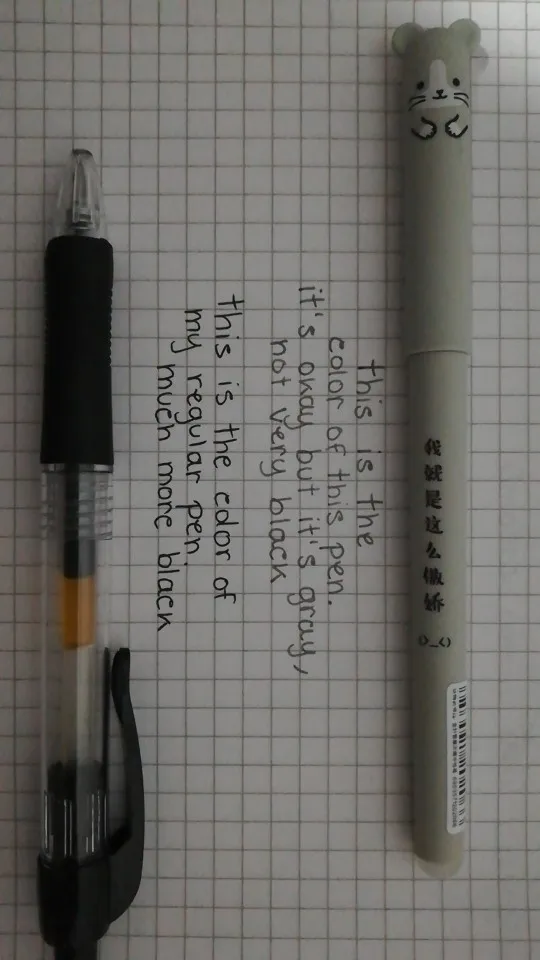 this is the
color of this pen.
it's okay but it's gray,
not very black
this is the color of
my regular pen.
much more black
我就是这么傲娇